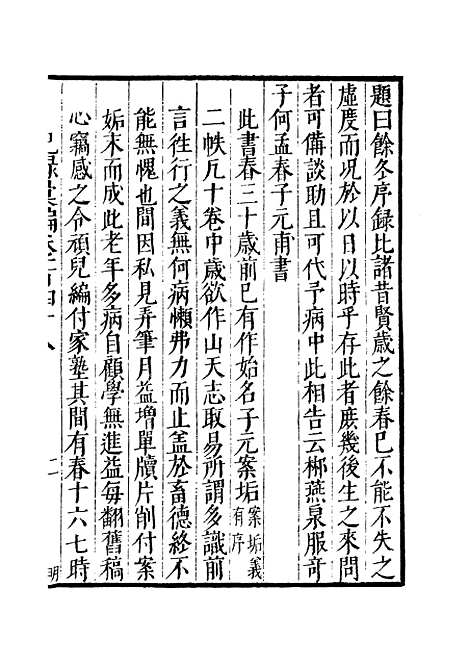 題曰餘冬序録比諸昔賢歳之餘春巳不能不失之
虚度而况於以日以時乎存此者庻幾後生之來問
者可備談助且可代予病中此相告云郴燕泉服竒
子何孟春子元甫書
此書春三十歳前巳有作始名子元案垢案垢義有序
二帙凡十卷中歳欲作山天志取易所謂多識前
言徃行之義無何病懶弗力而止盖於畜德終不
能無愧也間因私見弄筆月益增單牘片削付案
垢末而成此老年多病自顧學無進益每翻舊稿
心竊感之令頑兒編付家塾其間有春十六七時